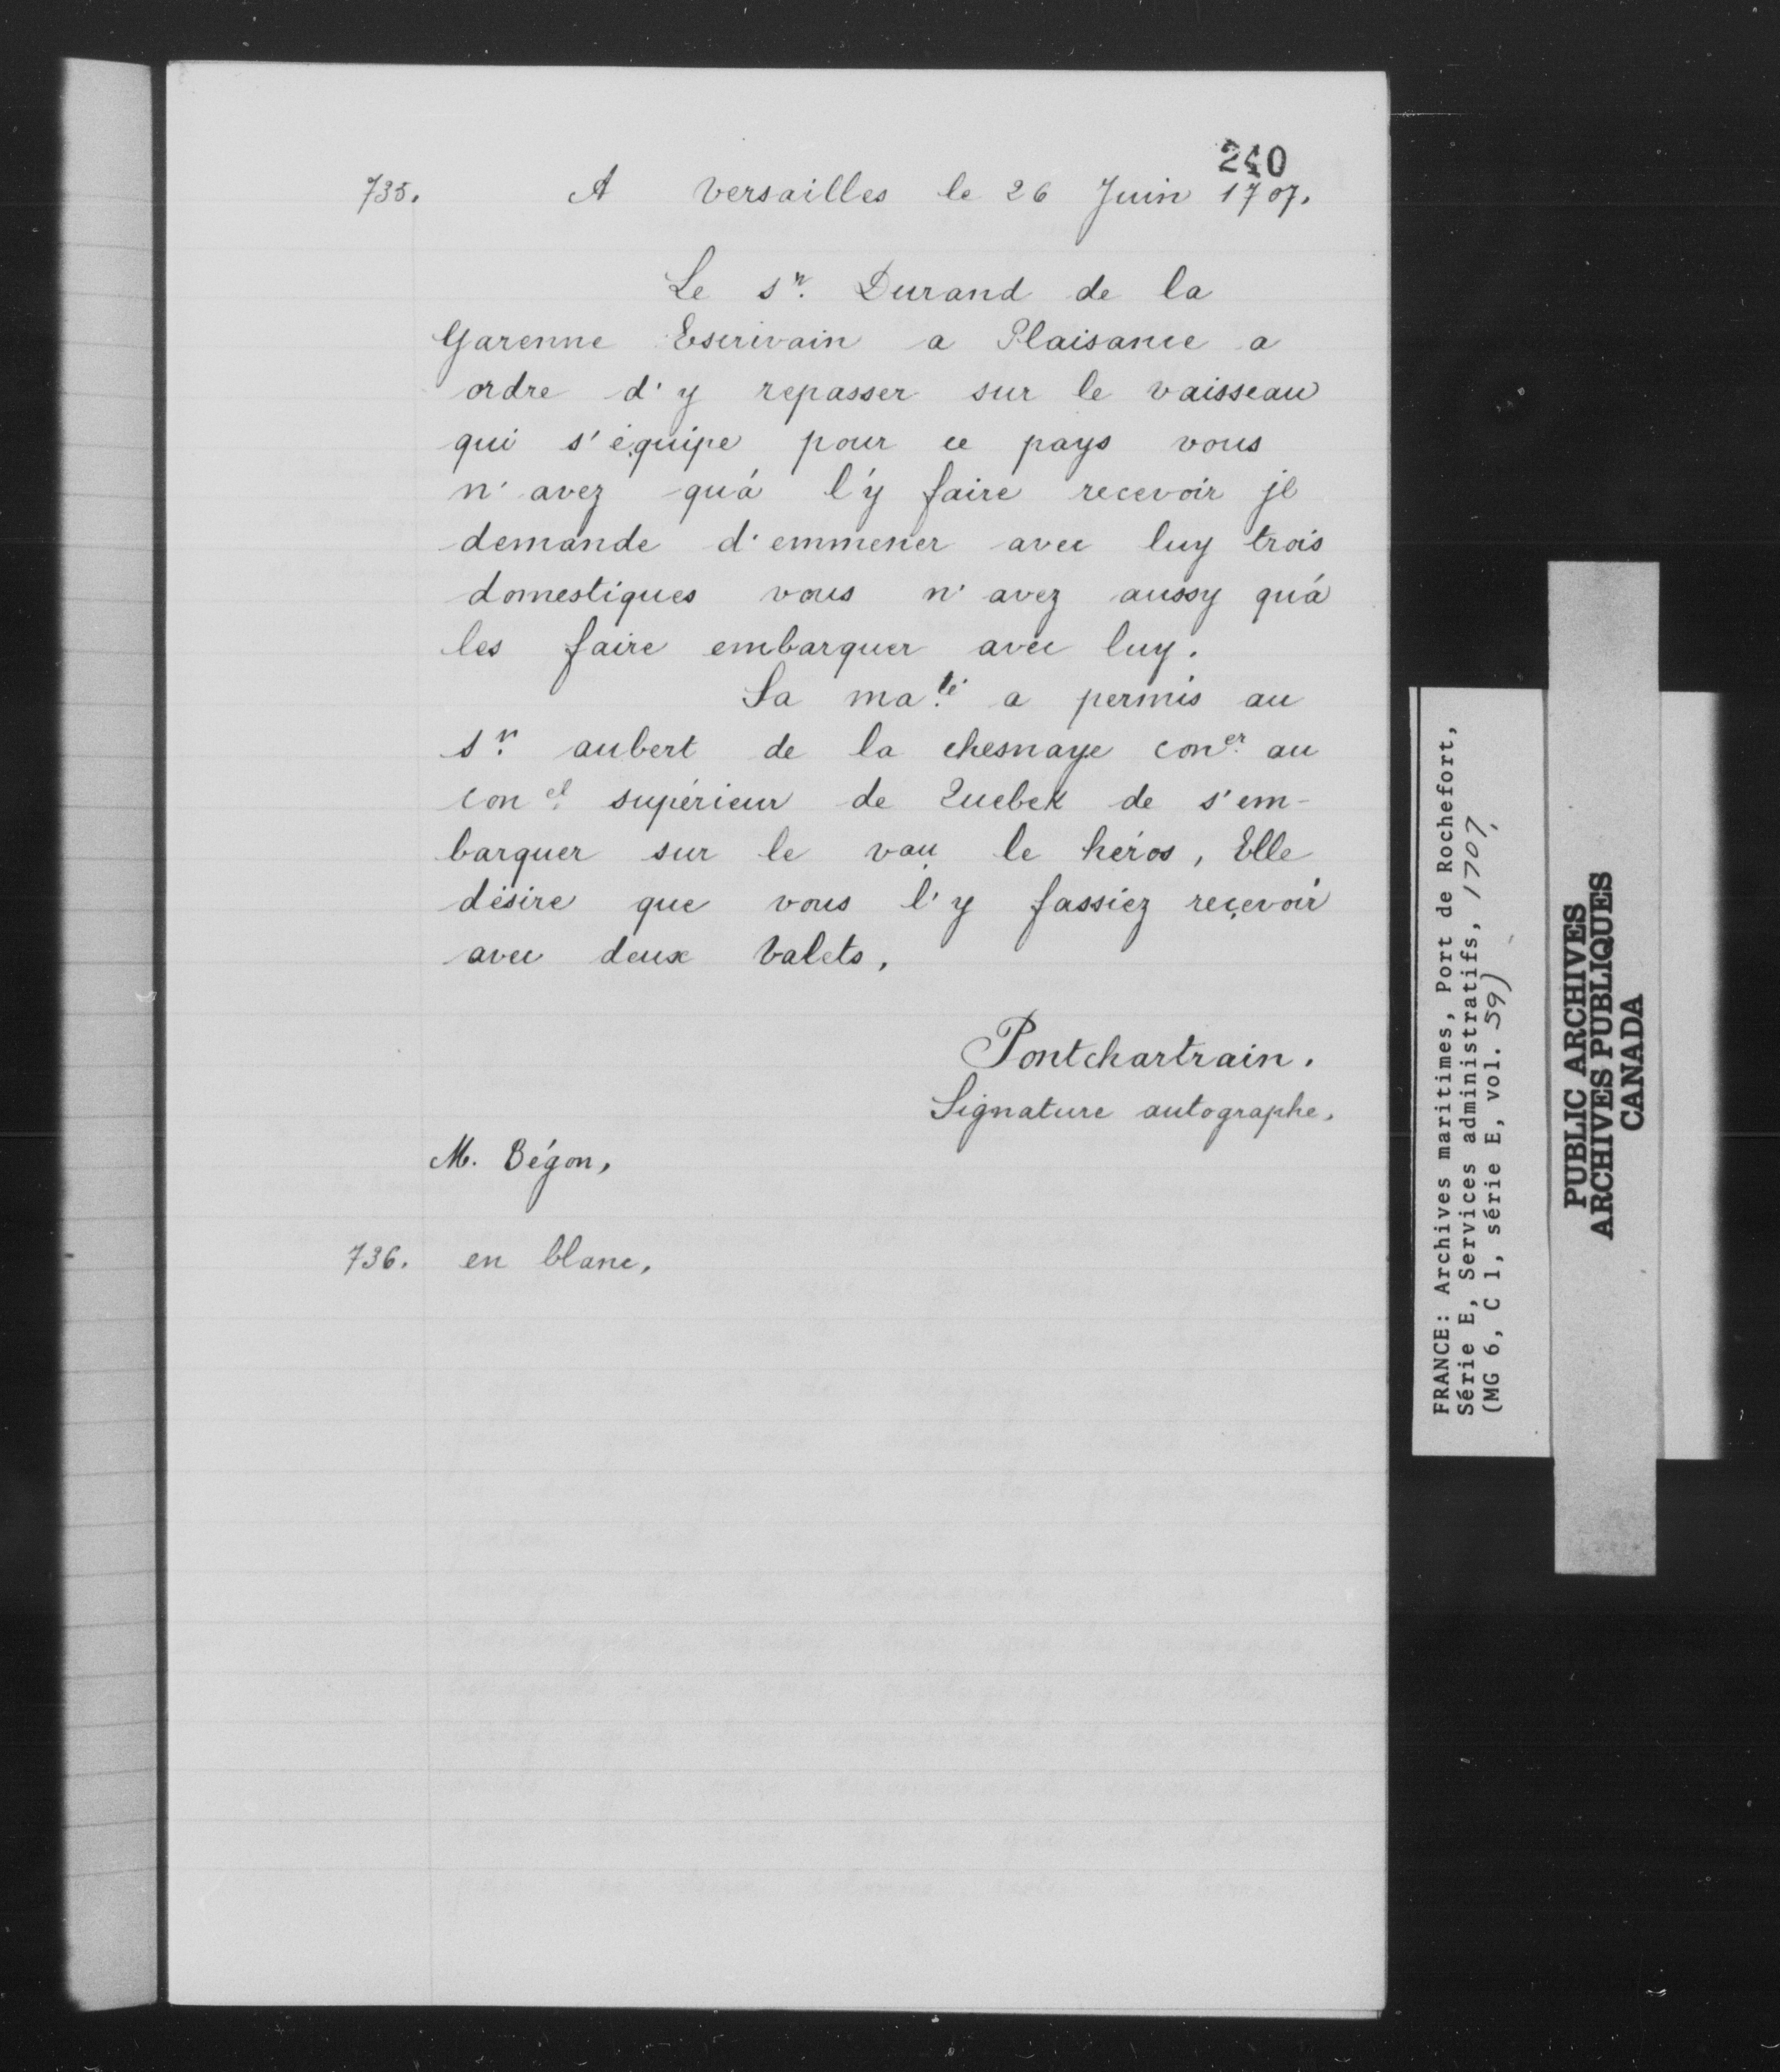 240
735. A Versailles le 26 Juin 1707.
Le sr. Durand de la
Garenne Escrivain a Plaisance a
ordre d'y repasser sur le vaisseau
qui s'équipe pour ce pays vous
n'avez qu'à l'y faire recevoir jl
demande d'emmener avec luy trois
domestiques vous n'avez aussy qu'à
les faire embarquer avec luy.
Sa maté a permis au
sr. aubert de la chesnaye coner. au
conel. supérieur de Quebek de s'em-
barquer sur le vau le héros, Elle
désire que vous l'y fassiez recevoir
avec deux valets,
Pontchartrain.
Signature autographe.
M. Bégon,
736. en blanc,
FRANCE: Archives maritimes, Port de Rochefort,
Série E, Services administratifs, 1707,
(MG 6, C 1, série E, vol. 59)
PUBLIC ARCHIVES
ARCHIVES PUBLIQUES
CANADA